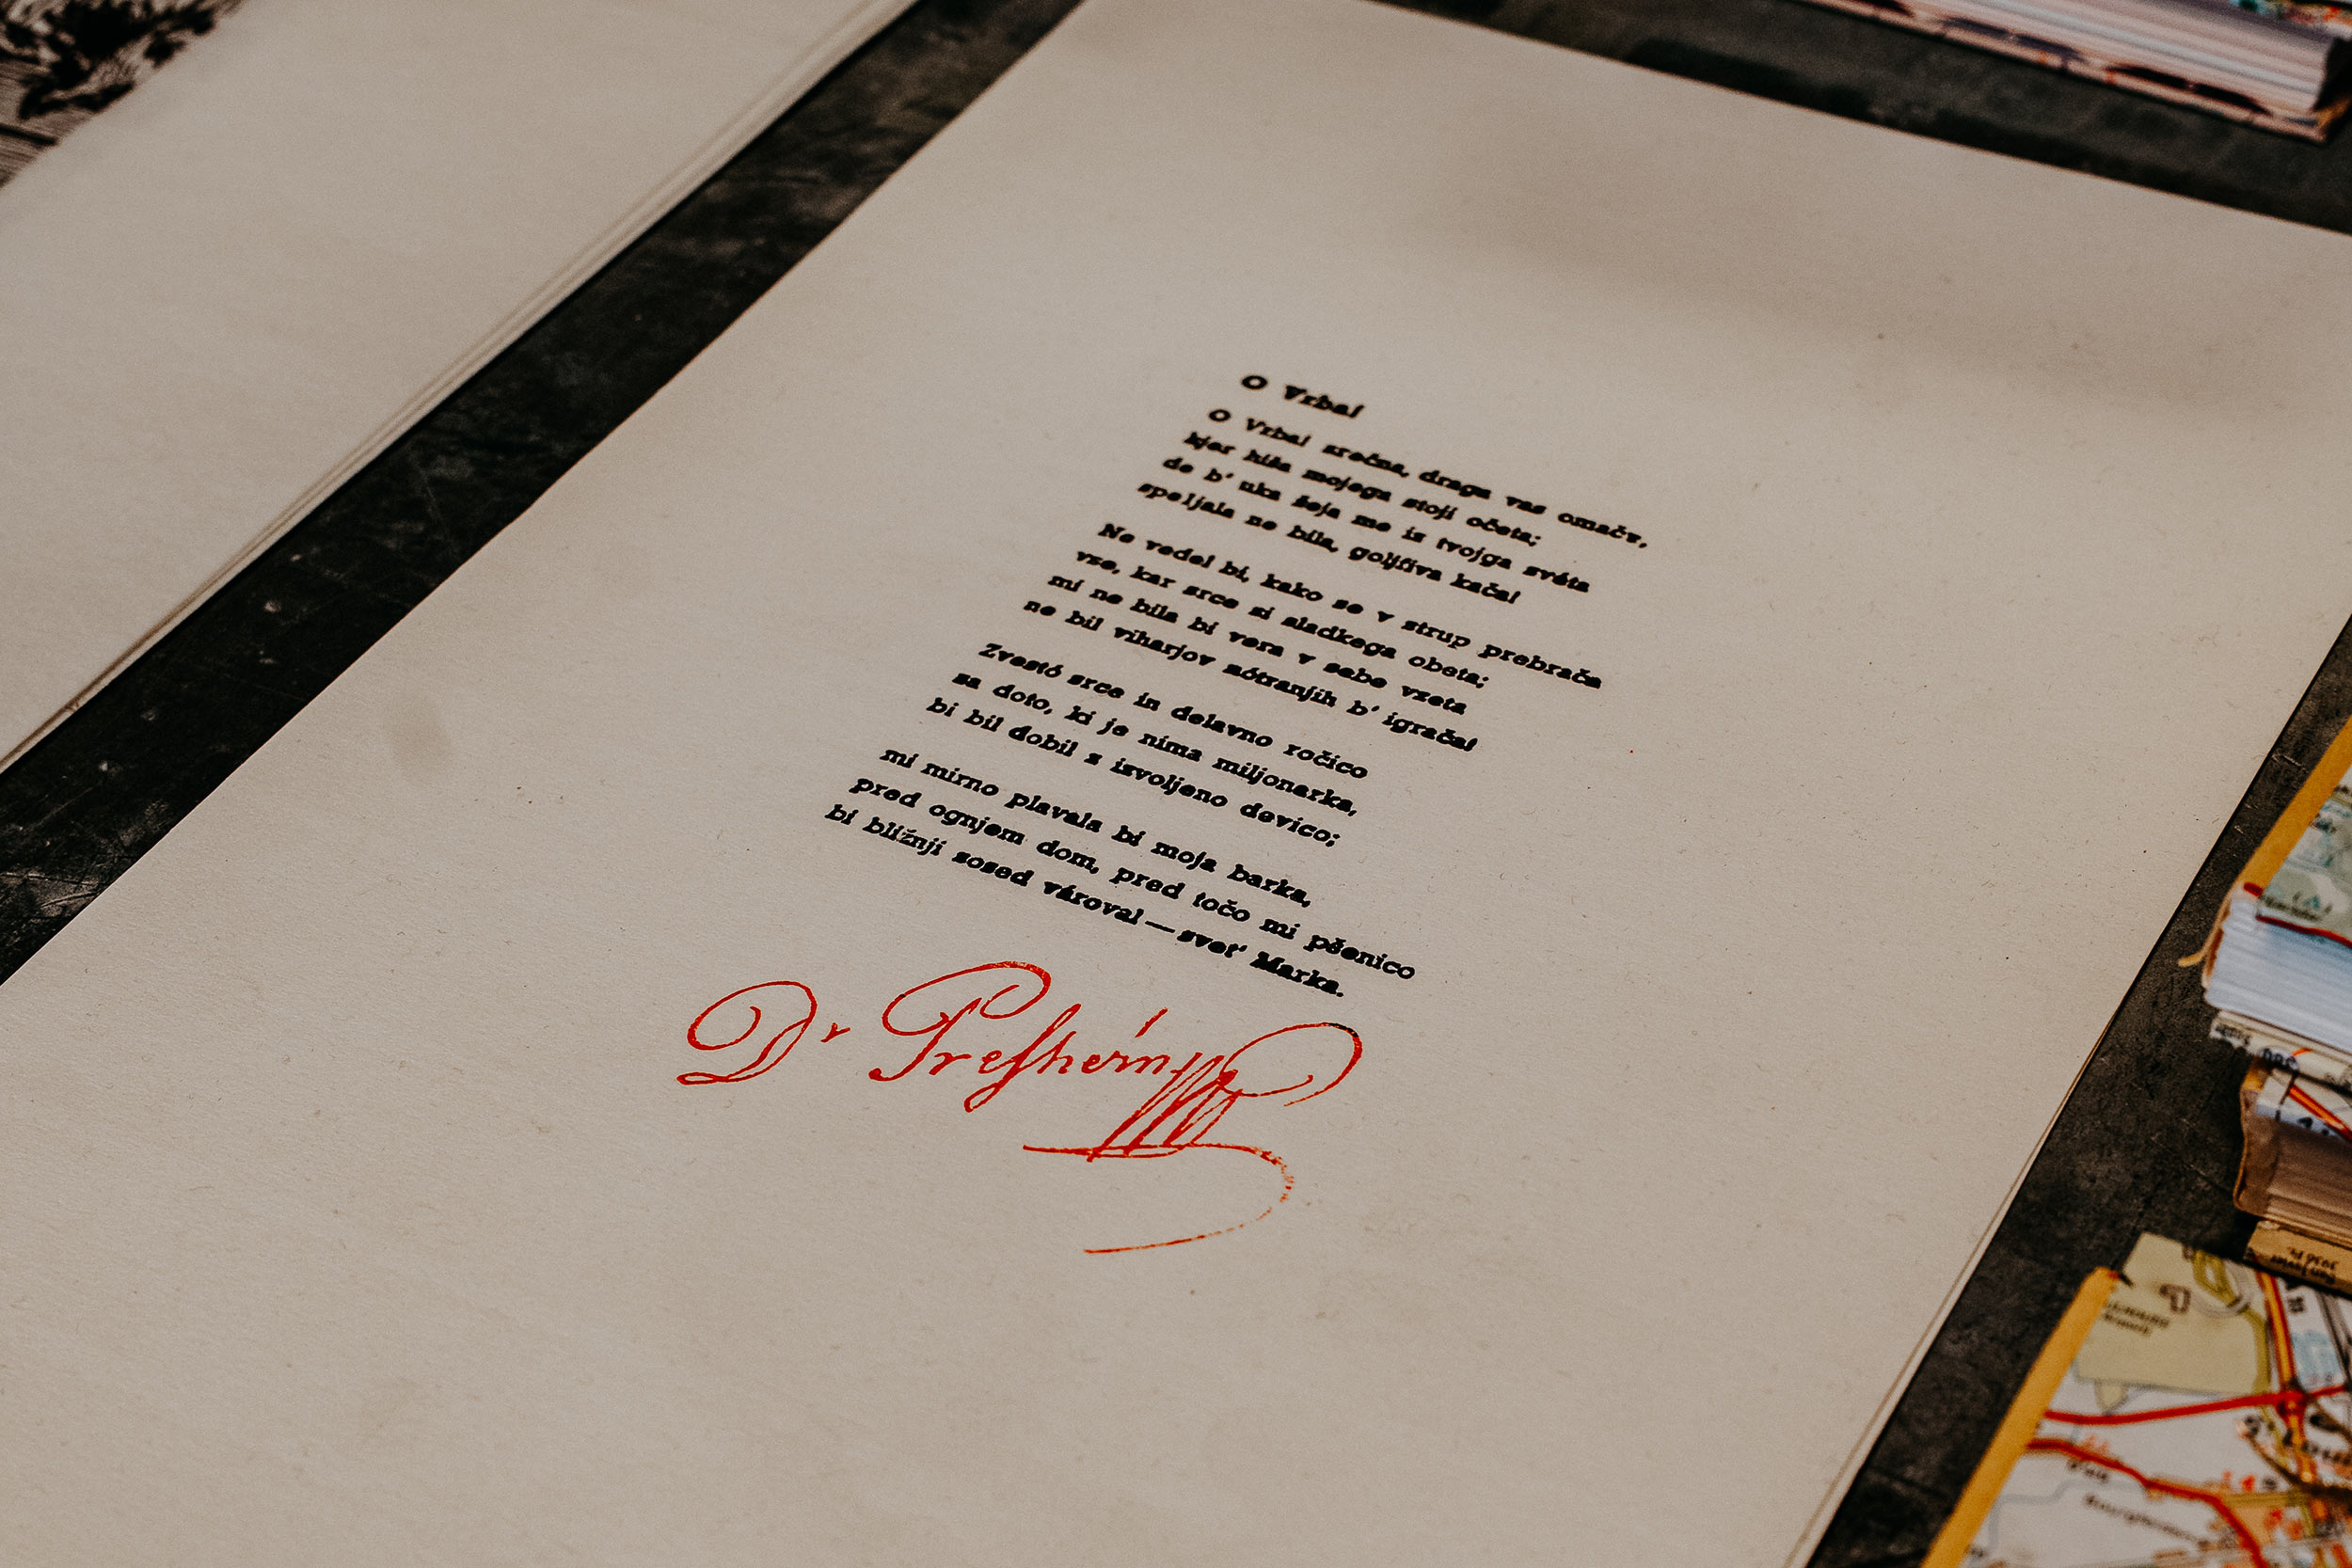 O Vrba!
O Vrba! srečna, draga vas domača,
kjer hiša mojega stoji očeta;
de b' uka žeja me iz tvojga svéta
speljala ne bila, goljfiva kača!
Ne vedel bi, kako se v strup prebrača
vse, kar srce si sladkega obeta;
mi ne bila bi vera v sebe vzeta
ne bil viharjov nótranjih b' igrača!
Zvestó srce in delavno ročico
za doto, ki je nima miljonarka,
bi bil dobil z izvoljeno devico;
mi mirno plavala bi moja barka,
pred ognjem dom, pred točo mi pšenico
bi bližnji sosed vároval — svet' Marka.
Dr Preſhérin